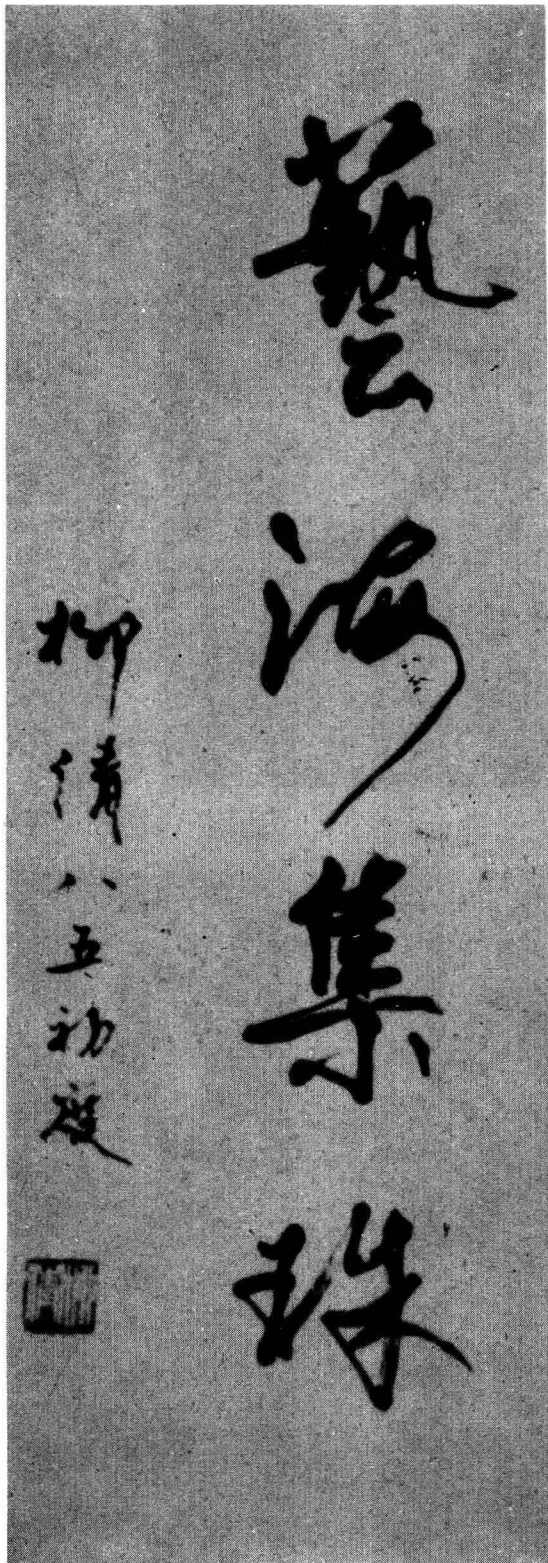 藝海集珠
柳倩八五初度